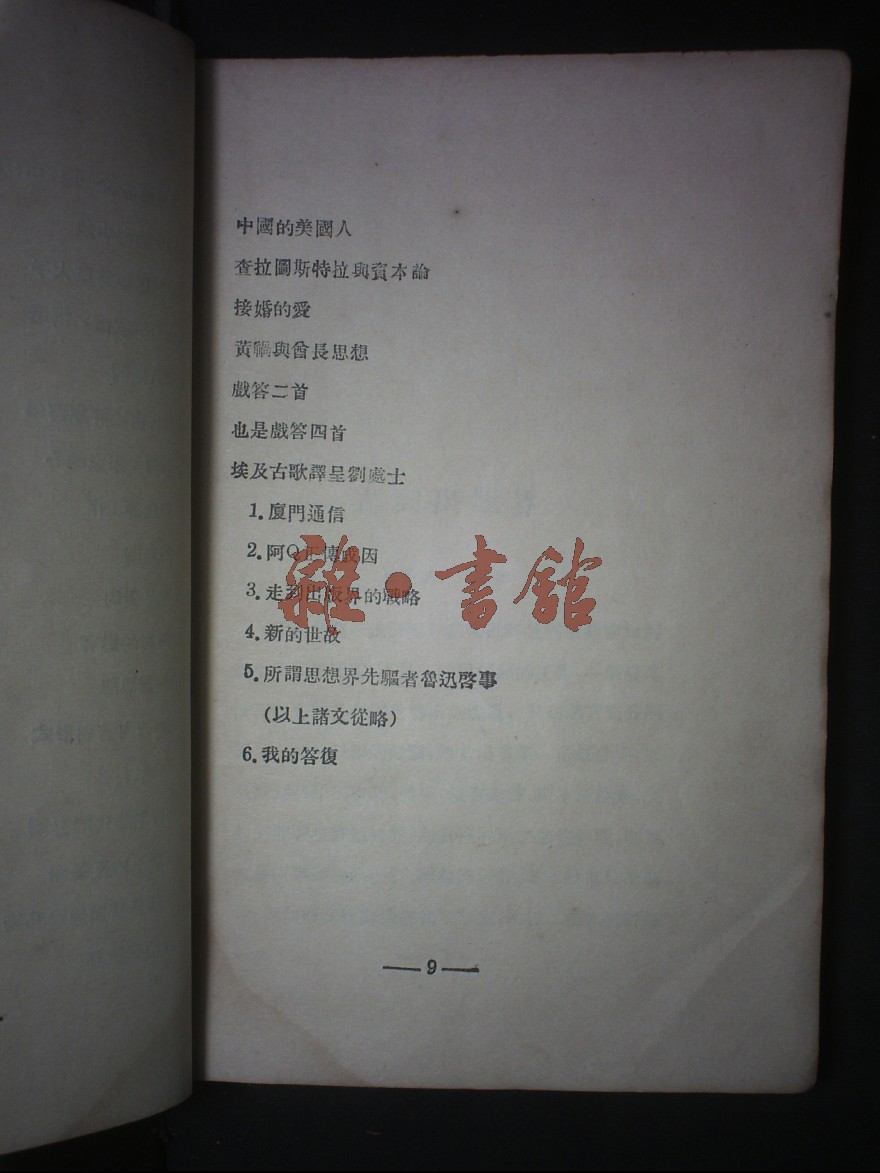 中國的美國人
查拉圖斯特拉與資本論
接婚的愛
黃禍與酋長思想
戲答二首
也是戲答四首
埃及古歌譯呈劉處士
1.廈門通信
2.阿Q正傳成因
3.走到出版界的戰略
4.新的世故
5.所謂思想界先驅者魯迅啓事
(以上諸文從略)
6.我的答復
—9—
雜·書館